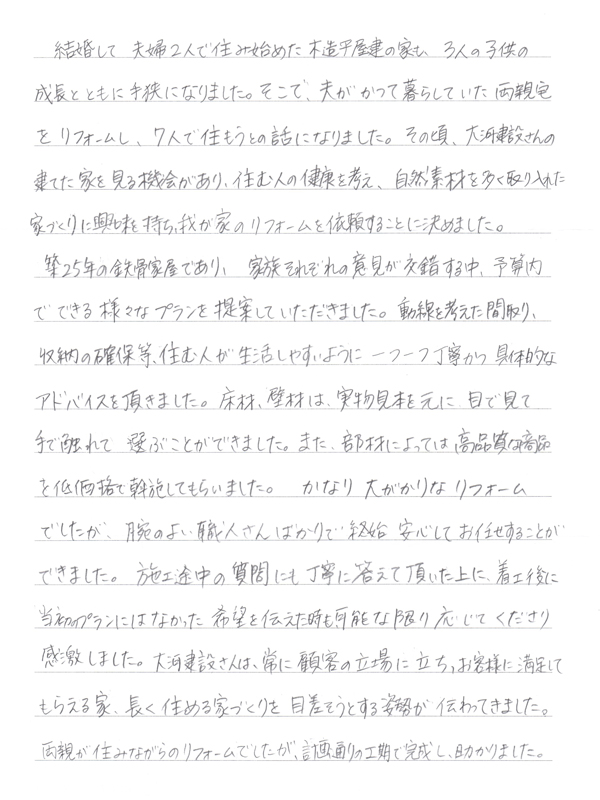 結婚して 夫婦2人で住み始めた木造平屋建の家も、3人の子供の
成長とともに手狭になりました。そこで、夫がかつて暮らしていた両親宅
をリフォームし、7人で住もうとの話になりました。その頃、大河建設さんの
建てた家を見る機会があり、住む人の健康を考え、自然素材を多く取り入れた
家づくりに興味を持ち、我が家のリフォームを依頼することに決めました。
築25年の鉄骨家屋であり、家族それぞれの意見が交錯する中、予算内
でできる様々なプランを提案していただきました。動線を考えた間取り、
収納の確保等、住む人が生活しやすいように一つ一つ丁寧かつ具体的な
アドバイスを頂きました。床材、壁材は、実物見本を元に目で見て
手で触れて選ぶことができました。また、部材によっては高品質な商品
を低価格で斡旋してもらいました。かなり大がかりなリフォーム
でしたが、腕のよい職人さんばかりで終始安心してお任せすることが
できました。施工途中の質問にも丁寧に答えて頂いた上に、着工後に
当初のプランにはなかった希望を伝えた時も可能な限り応じてくださり
感激しました。大河建設さんは、常に顧客の立場に立ち、お客様に満足して
もらえる家、長く住める家づくりを目差そうとする姿勢が伝わってきました。
両親が住みながらのリフォームでしたが、計画通りの工期で完成し、助かりました。